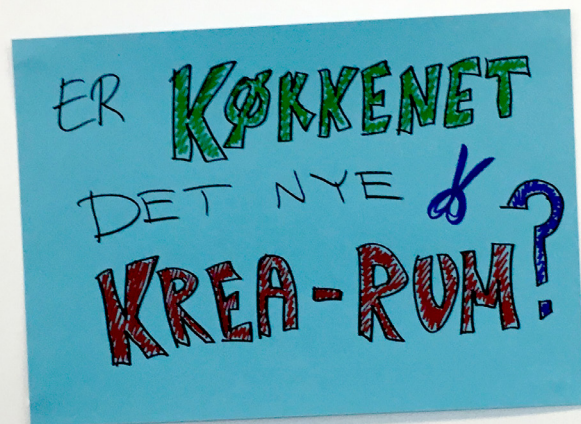 ER KØKKENET
DET NYE
KREA-RUM?